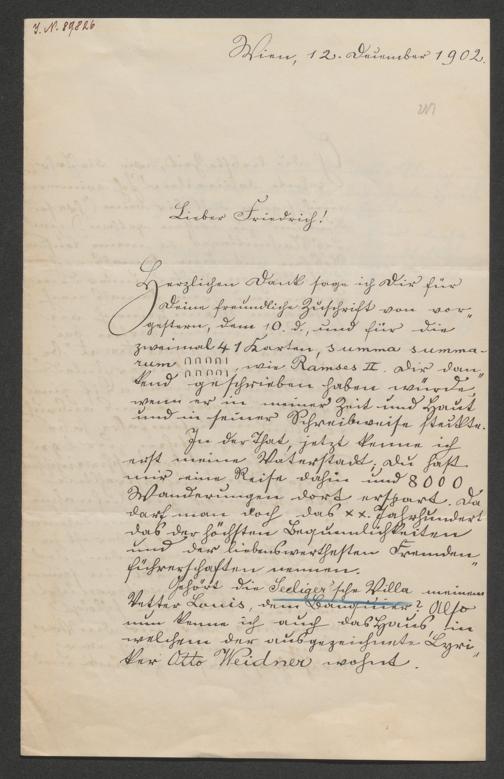 J. N. 89826
Wien, 12. Dezember 1902.
Lieber Friedrich!
Herzlichen Dank sage ich Dir für
Deine freundliche Zuschrift von vor-
gestern, dem 10. d., und für die
zweimal 41 Karten, summa summa-
rum ∩∩∩∩I ∩∩∩∩I, wie Ramses II. Dir dan-
kend geschrieben haben würde,
wenn er in meiner Zeit und Haut
und in seiner Schreibweise steckte.
In der That, jetzt kenne ich
erst meine Vaterstadt; Du hast
mir eine Reise dahin und 8000
Wanderungen dort erspart. Da
darf man doch das XX. Jahrhundert
das der höchsten Bequemlichkeiten
und der liebenswerthesten Fremden-
führerschaften nennen.
Gehört die Seeliger'sche Villa meinem
Vetter Louis, dem Banquier? Also
nun kenne ich auch das Haus, in
welchem der ausgezeichnete Lyri-
ker Otto Weidner wohnt.